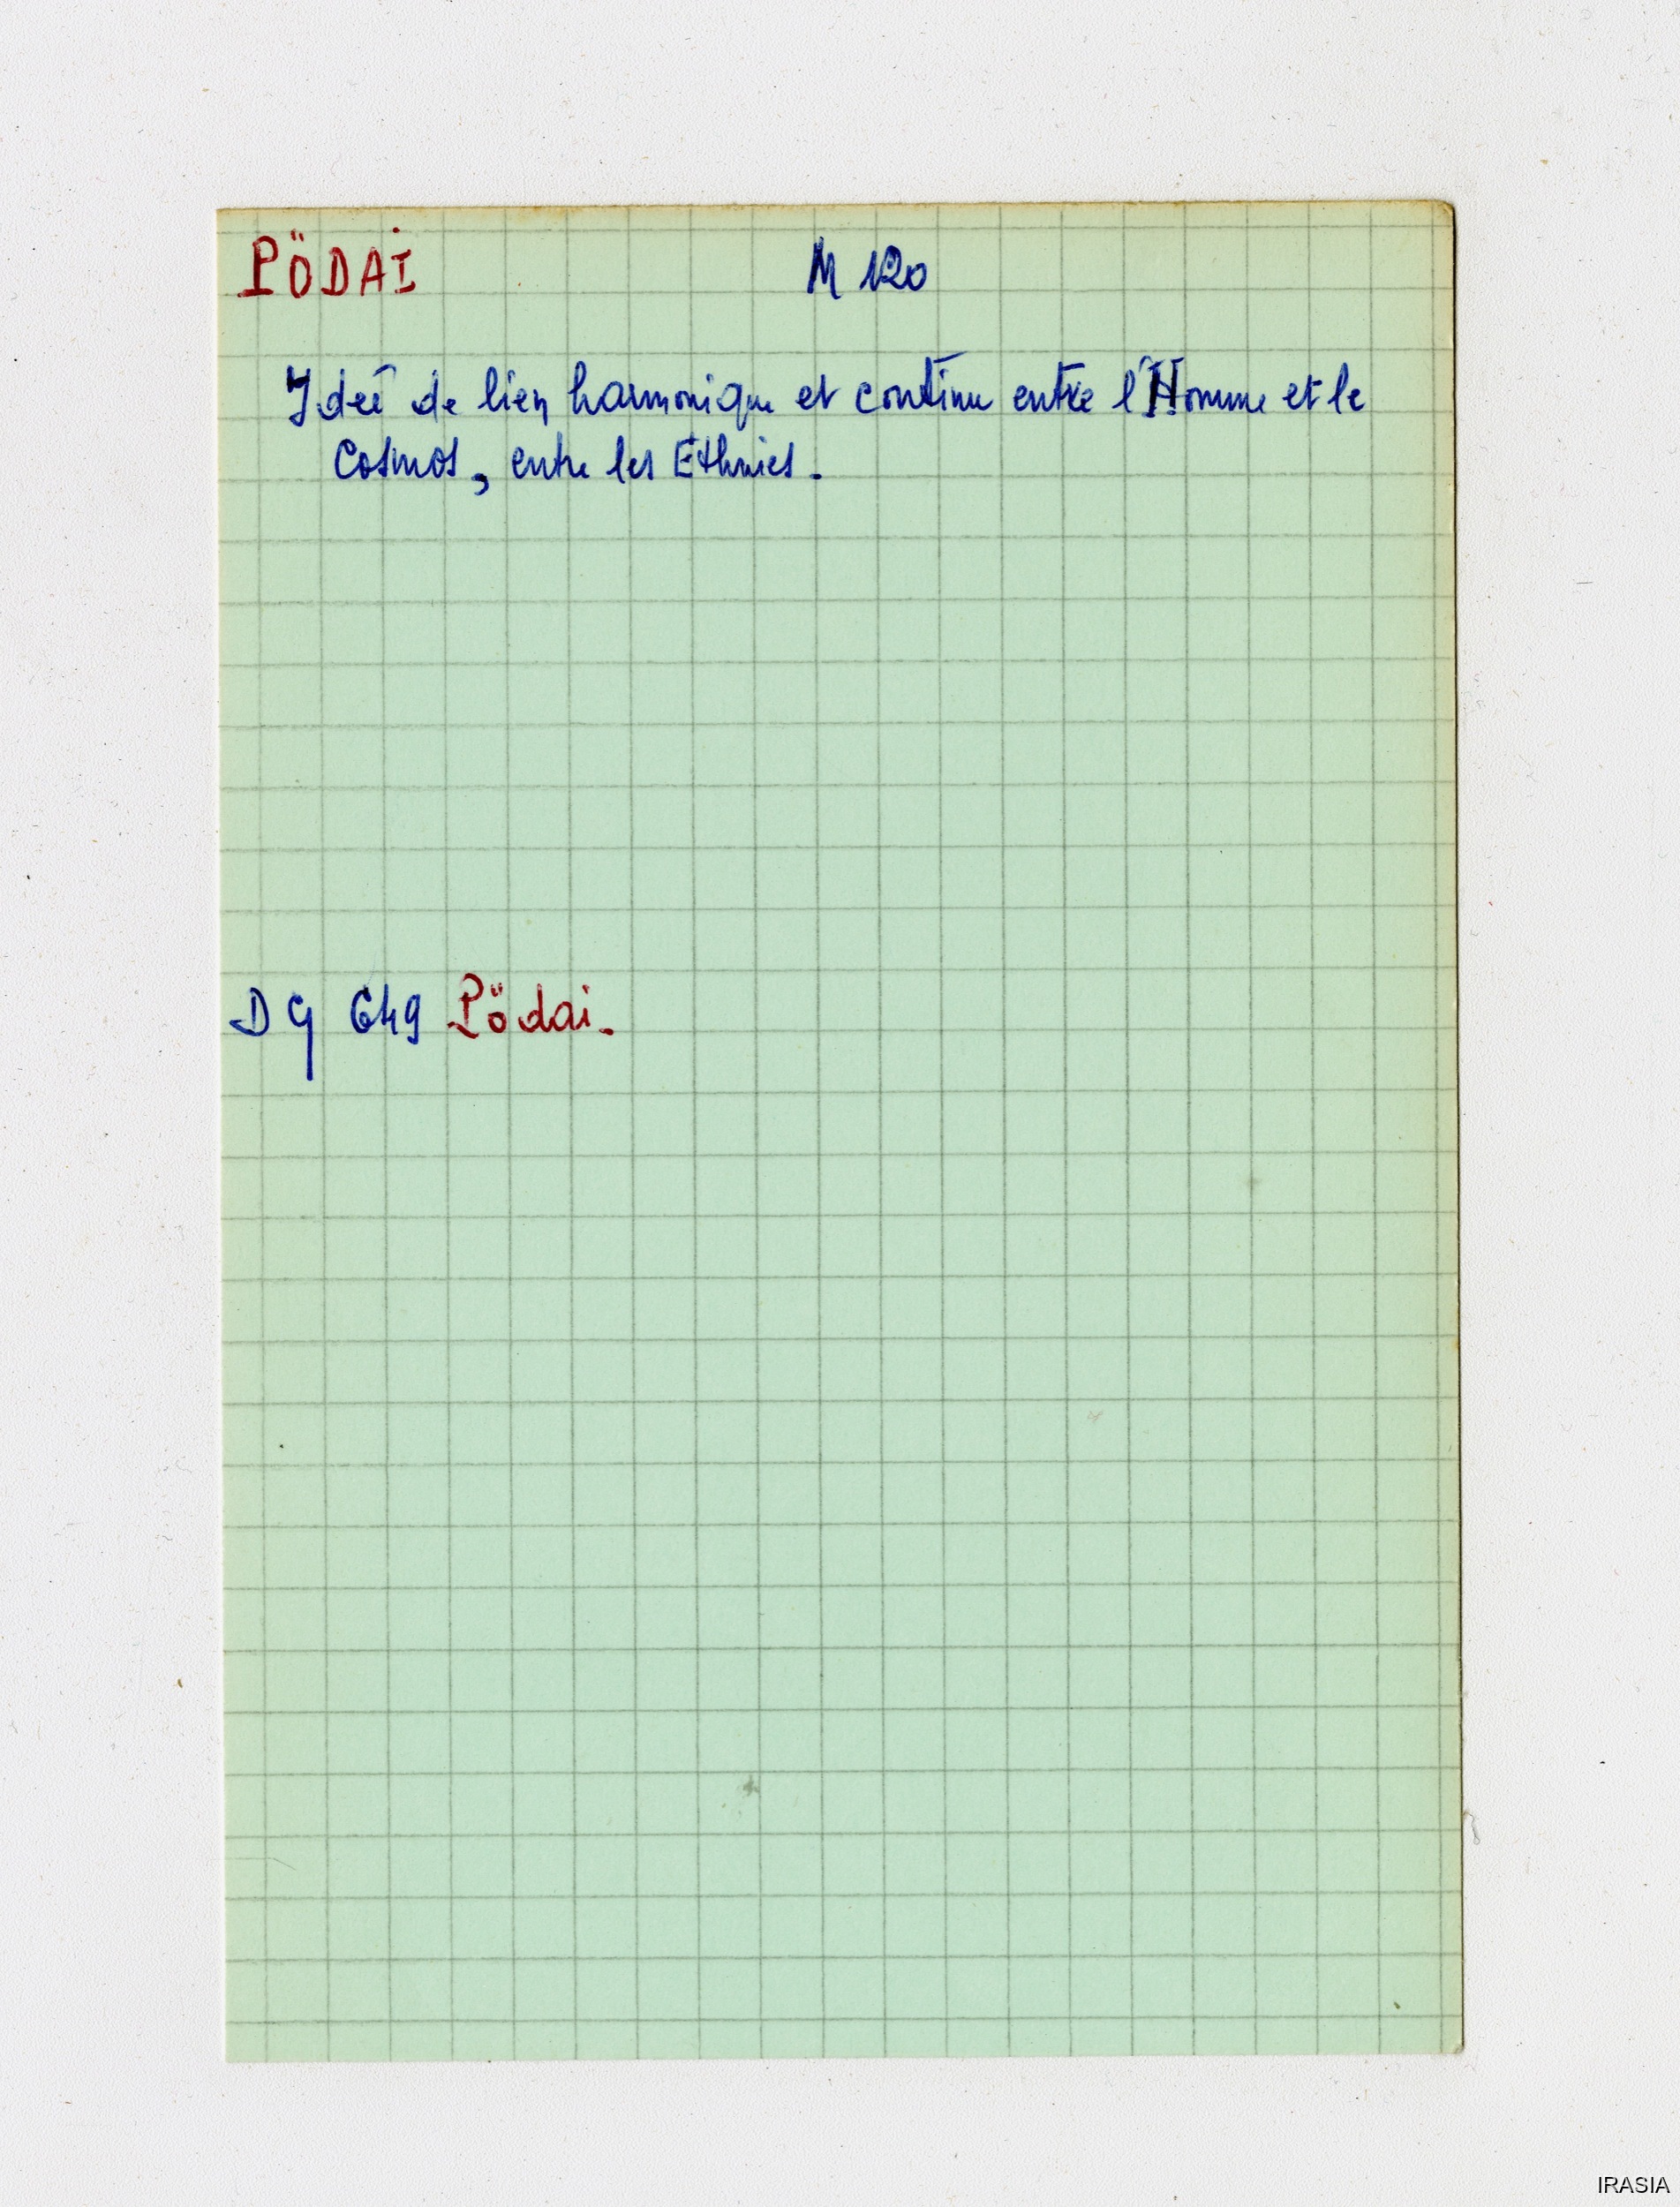 PÖDAI M 120
Idée de lien harmonique et continu entre l'Homme et le
Cosmos, entre les Ethnies.
D G 649 Pödai.
IRASIA